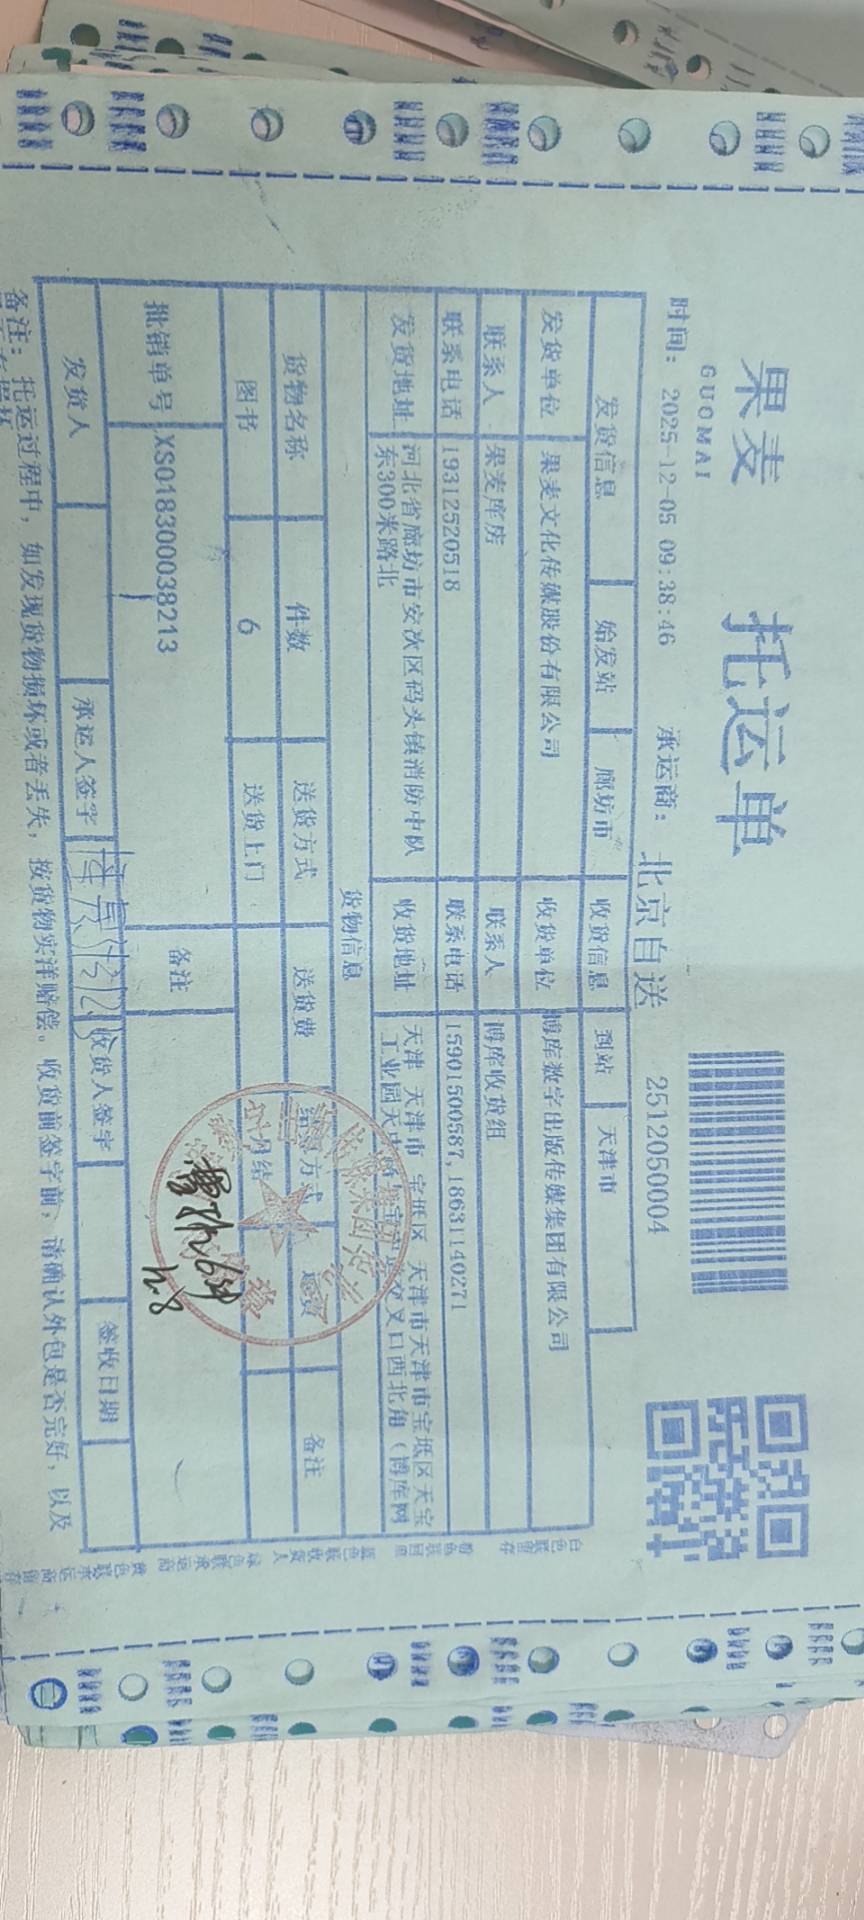 果麦
GUOMAI
托运单
时间: 2025-12-05 09:38:46 承运商: 北京自送 2512050004
发货信息 始发站 廊坊市 收货信息 到站 天津市
发货单位 果麦文化传媒股份有限公司 收货单位 博库数字出版传媒集团有限公司
联系人 果麦库房 联系人 博库收货组
联系电话 19312520518 联系电话 15901500587,18631140271
发货地址 河北省廊坊市安次区码头镇消防中队
东300米路北
收货地址 天津 天津市 宝坻区 天津市天津市宝坻区天宝
工业园天 交叉口西北角（博库网
货物信息
货物名称 件数 送货方式 送货费 结 方式 运费 备注
图书 6 送货上门 月结
批销单号 XS018300038213 备注
发货人 承运人签字 收货人签字 签收日期
备注: 托运过程中，如发现货物损坏或者丢失，按货物实洋赔偿。收货前签字前，请确认外包是否完好，以及
白色联留存 粉色联回单 蓝色联收货人 绿色联承运商 黄色联承运商留存